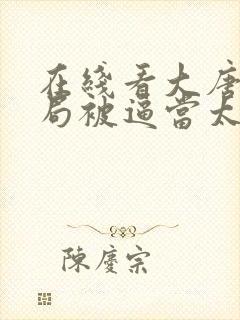 在綫看大唐
局被逼當太
陳慶宗